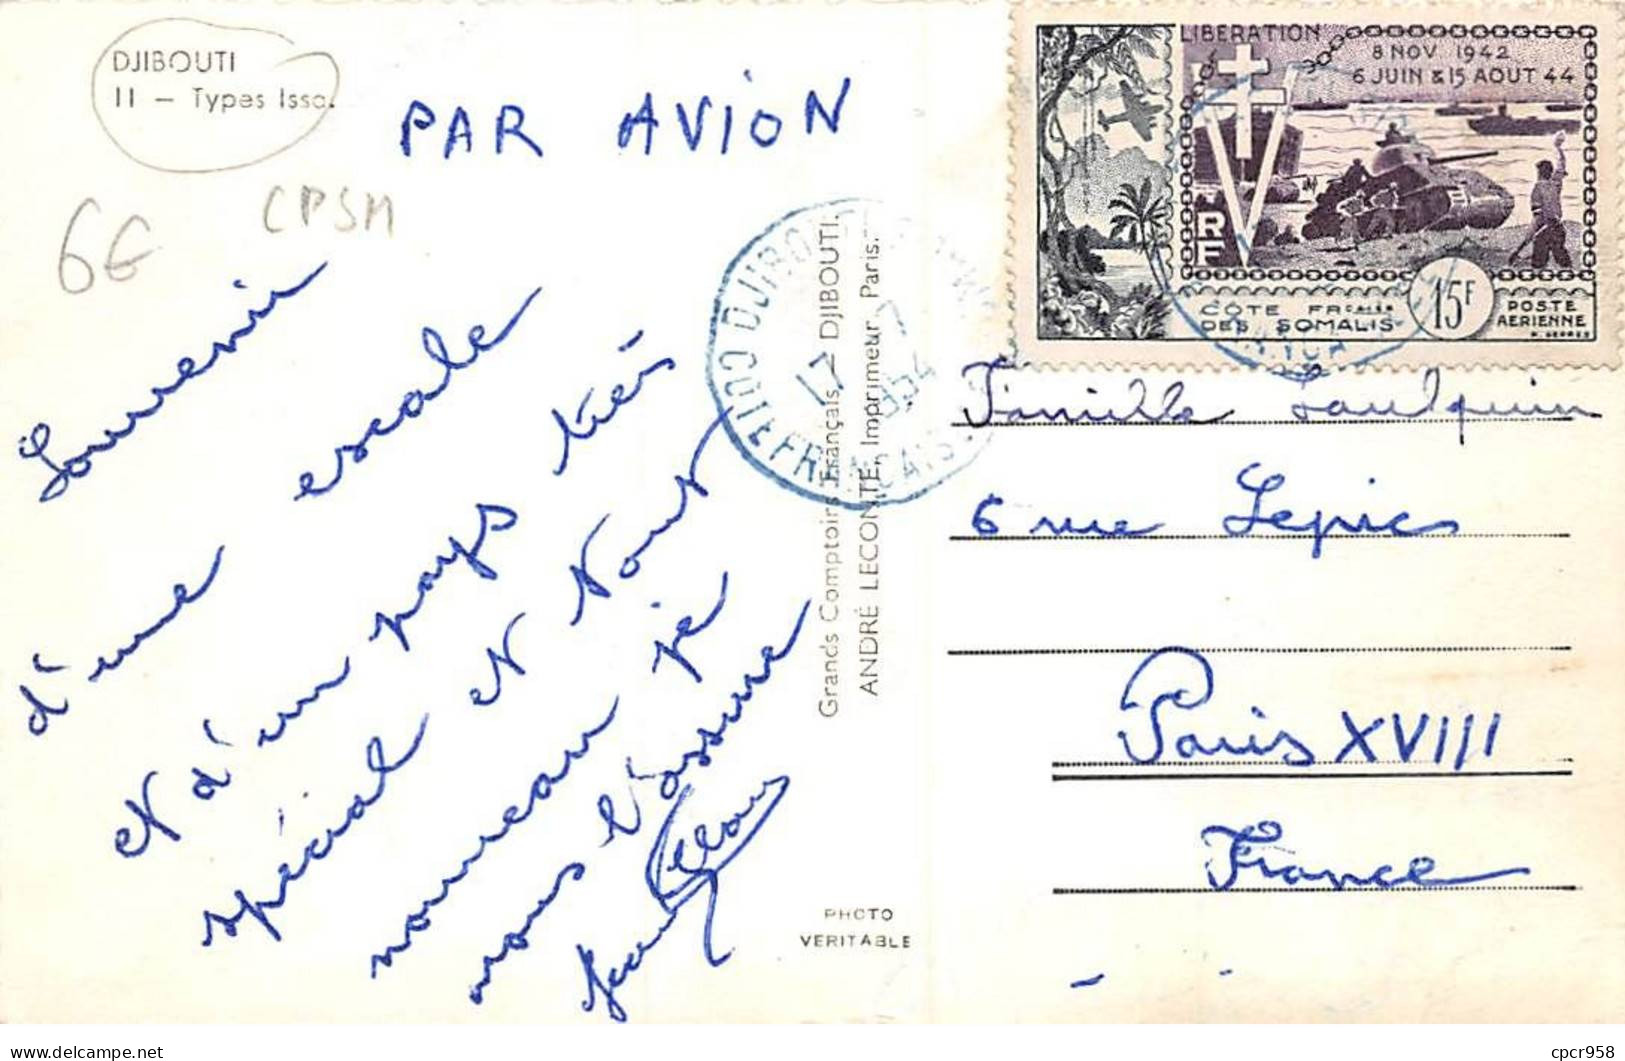 DJIBOUTI
11 — Types Issa.
PAR AVION
6€
CPSM
Souvenir
d'une escale
et d'un pays très
spécial et tout
nouveau je
vous l'assure
Jean Claus
Grands Comptoirs Français — DJIBOUTI.
ANDRÉ LECONTE, Imprimeur Paris.
PHOTO
VERITABLE
DJIBOUTI
17 7
1954
COTE FRANCAISE
LIBERATION
8 NOV 1942
6 JUIN & 15 AOUT 44
RF
15F
COTE FRCAISE
DES SOMALIS
POSTE
AERIENNE
Famille Saulquin
6 rue Lepic
Paris XVIII
France
cpcr958